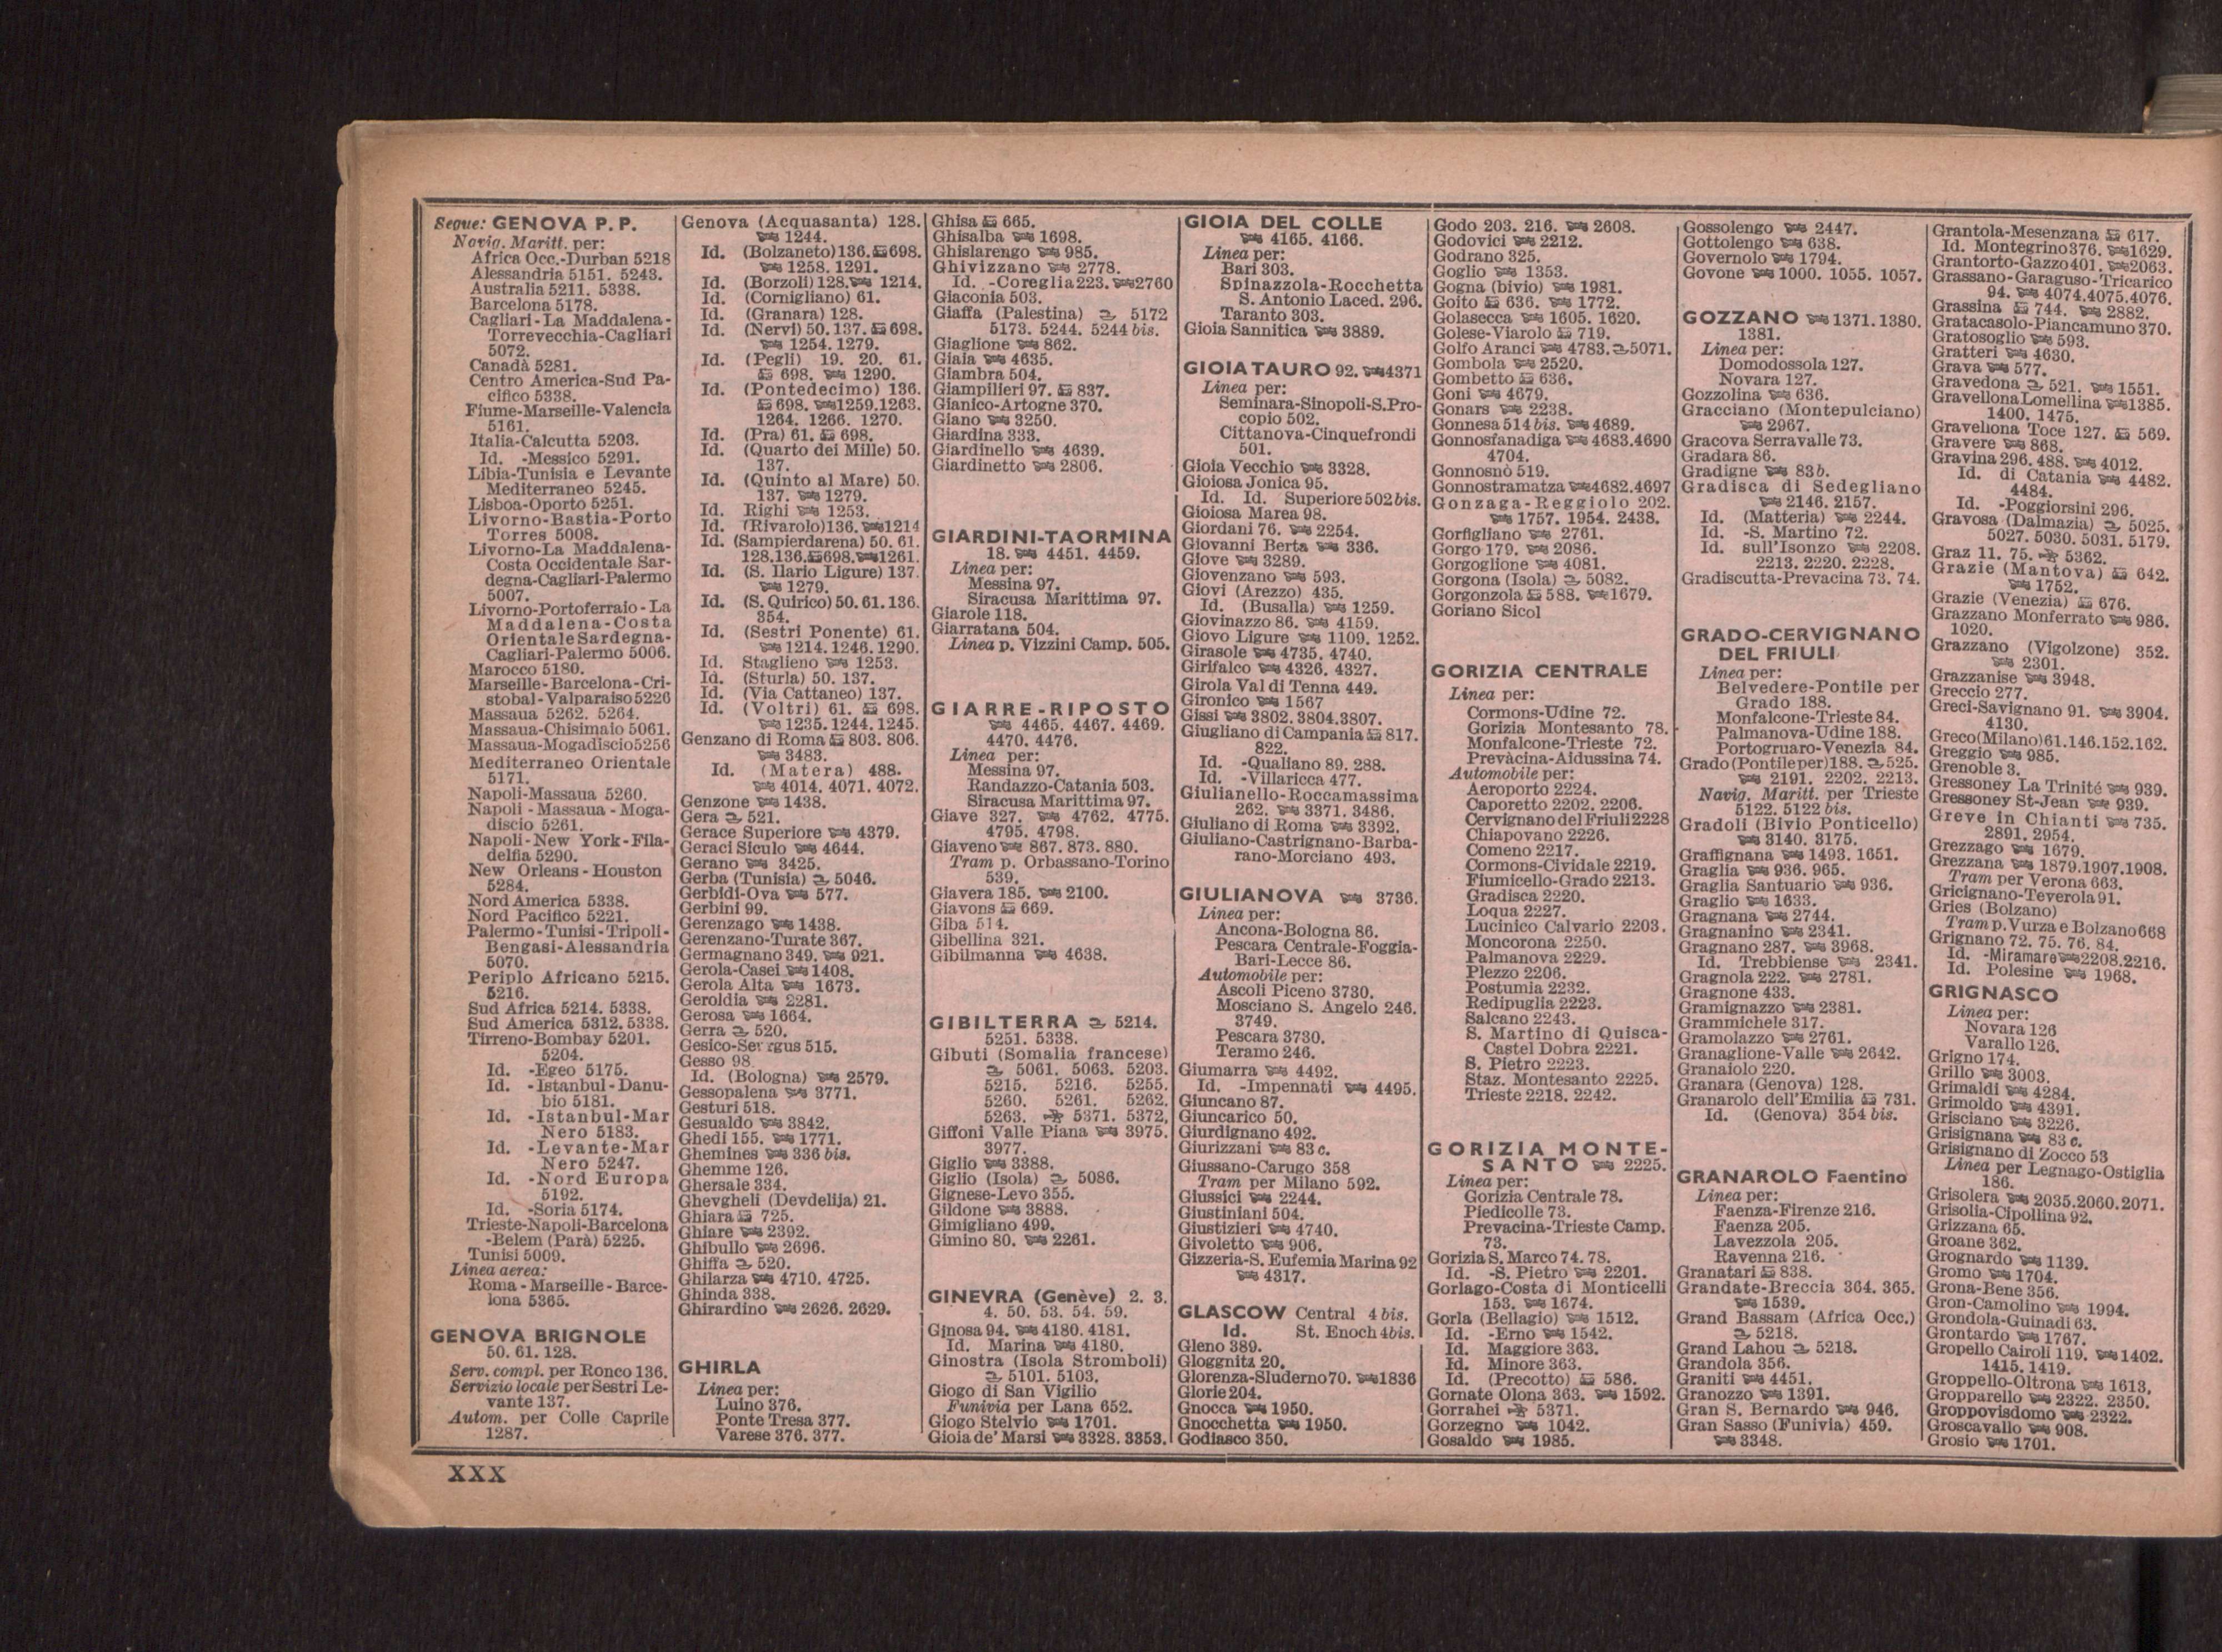 Segue: GENOVA P. P.
Navig. Maritt. per:
Africa Occ.-Durban 5218
Alessandria 5151. 5243.
Australia 5211. 5338.
Barcelona 5178.
Cagliari-La Maddalena-
Torrevecchia-Cagliari
5072.
Canadà 5281.
Centro America-Sud Pa-
cifico 5338.
Fiume-Marseille-Valencia
5161.
Italia-Calcutta 5203.
Id. -Messico 5291.
Libia-Tunisia e Levante
Mediterraneo 5245.
Lisboa-Oporto 5251.
Livorno-Bastia-Porto
Torres 5008.
Livorno-La Maddalena-
Costa Occidentale Sar-
degna-Cagliari-Palermo
5007.
Livorno-Portoferraio-La
Maddalena-Costa
Orientale Sardegna-
Cagliari-Palermo 5006.
Marocco 5180.
Marseille-Barcelona-Cri-
stobal-Valparaiso 5226
Massaua 5262. 5264.
Massaua-Chisimaio 5061.
Massaua-Mogadiscio 5256
Mediterraneo Orientale
5171.
Napoli-Massaua 5260.
Napoli-Massaua-Moga-
discio 5261.
Napoli-New York-Fila-
delfia 5290.
New Orleans-Houston
5284.
Nord America 5338.
Nord Pacifico 5221.
Palermo-Tunisi-Tripoli-
Bengasi-Alessandria
5070.
Periplo Africano 5215.
5216.
Sud Africa 5214. 5338.
Sud America 5312. 5338.
Tirreno-Bombay 5201.
5204.
Id. -Egeo 5175.
Id. -Istanbul-Danu-
bio 5181.
Id. -Istanbul-Mar
Nero 5183.
Id. -Levante-Mar
Nero 5247.
Id. -Nord Europa
5192.
Id. -Soria 5174.
Trieste-Napoli-Barcelona
-Belem (Parà) 5225.
Tunisi 5009.
Linea aerea:
Roma-Marseille-Barce-
lona 5365.
GENOVA BRIGNOLE
50. 61. 128.
Serv. compl. per Ronco 136.
Servizio locale per Sestri Le-
vante 137.
Autom. per Colle Caprile
1287.
Genova (Acquasanta) 128.
1244.
Id. (Bolzaneto) 136. 698.
1258. 1291.
Id. (Borzoli) 128. 1214.
Id. (Cornigliano) 61.
Id. (Granara) 128.
Id. (Nervi) 50. 137. 698.
1254. 1279.
Id. (Pegli) 19. 20. 61.
698. 1290.
Id. (Pontedecimo) 136.
698. 1259. 1263.
1264. 1266. 1270.
Id. (Pra) 61. 698.
Id. (Quarto dei Mille) 50.
137.
Id. (Quinto al Mare) 50.
137. 1279.
Id. Righi 1253.
Id. (Rivarolo) 136. 1214
Id. (Sampierdarena) 50. 61.
128. 136. 698. 1261.
Id. (S. Ilario Ligure) 137.
1279.
Id. (S. Quirico) 50. 61. 136.
354.
Id. (Sestri Ponente) 61.
1214. 1246. 1290.
Id. Staglieno 1253.
Id. (Sturla) 50. 137.
Id. (Via Cattaneo) 137.
Id. (Voltri) 61. 698.
1235. 1244. 1245.
Genzano di Roma 803. 806.
3483.
Id. (Matera) 488.
4014. 4071. 4072.
Genzone 1438.
Gera 521.
Gerace Superiore 4379.
Geraci Siculo 4644.
Gerano 3425.
Gerba (Tunisia) 5046.
Gerbidi-Ova 577.
Gerbini 99.
Gerenzago 1438.
Gerenzano-Turate 367.
Germagnano 349. 921.
Gerola-Casei 1408.
Gerola Alta 1673.
Geroldia 2281.
Gerosa 1664.
Gerra 520.
Gesico-Se gus 515.
Gesso 98
Id. (Bologna) 2579.
Gessopalena 3771.
Gesturi 518.
Gesualdo 3842.
Ghedi 155. 1771.
Ghemines 336 bis.
Ghemme 126.
Ghersale 334.
Ghevgheli (Devdelija) 21.
Ghiara 725.
Ghiare 2392.
Ghibullo 2696.
Ghiffa 520.
Ghilarza 4710. 4725.
Ghinda 338.
Ghirardino 2626. 2629.
GHIRLA
Linea per:
Luino 376.
Ponte Tresa 377.
Varese 376. 377.
Ghisa 665.
Ghisalba 1698.
Ghislarengo 985.
Ghivizzano 2778.
Id. -Coreglia 223. 2760
Giaconia 503.
Giaffa (Palestina) 5172
5173. 5244. 5244 bis.
Giaglione 862.
Giaia 4635.
Giambra 504.
Giampilieri 97. 837.
Gianico-Artogne 370.
Giano 3250.
Giardina 333.
Giardinello 4639.
Giardinetto 2806.
GIARDINI-TAORMINA
18. 4451. 4459.
Linea per:
Messina 97.
Siracusa Marittima 97.
Giarole 118.
Giarratana 504.
Linea p. Vizzini Camp. 505.
GIARRE-RIPOSTO
4465. 4467. 4469.
4470. 4476.
Linea per:
Messina 97.
Randazzo-Catania 503.
Siracusa Marittima 97.
Giave 327. 4762. 4775.
4795. 4798.
Giaveno 867. 873. 880.
Tram p. Orbassano-Torino
539.
Giavera 185. 2100.
Giavons 669.
Giba 514.
Gibellina 321.
Gibilmanna 4638.
GIBILTERRA 5214.
5251. 5338.
Gibuti (Somalia francese)
5061. 5063. 5203.
5215. 5216. 5255.
5260. 5261. 5262.
5263. 5371. 5372.
Giffoni Valle Piana 3975.
3977.
Giglio 3388.
Giglio (Isola) 5086.
Gignese-Levo 355.
Gildone 3888.
Gimigliano 499.
Gimino 80. 2261.
GINEVRA (Genève) 2. 3.
4. 50. 53. 54. 59.
Ginosa 94. 4180. 4181.
Id. Marina 4180.
Ginostra (Isola Stromboli)
5101. 5103.
Giogo di San Vigilio
Funivia per Lana 652.
Giogo Stelvio 1701.
Gioia de' Marsi 3328. 3353.
GIOIA DEL COLLE
4165. 4166.
Linea per:
Bari 303.
Spinazzola-Rocchetta
S. Antonio Laced. 296.
Taranto 303.
Gioia Sannitica 3889.
GIOIA TAURO 92. 4371
Linea per:
Seminara-Sinopoli-S. Pro-
copio 502.
Cittanova-Cinquefrondi
501.
Gioia Vecchio 3328.
Gioiosa Jonica 95.
Id. Id. Superiore 502 bis.
Gioiosa Marea 98.
Giordani 76. 2254.
Giovanni Berta 336.
Giove 3289.
Giovenzano 593.
Giovi (Arezzo) 435.
Id. (Busalla) 1259.
Giovinazzo 86. 4159.
Giovo Ligure 1109. 1252.
Girasole 4735. 4740.
Girifalco 4326. 4327.
Girola Val di Tenna 449.
Gironico 1567
Gissi 3802. 3804. 3807.
Giugliano di Campania 817.
822.
Id. -Qualiano 89. 288.
Id. -Villaricca 477.
Giulianello-Roccamassima
262. 3371. 3486.
Giuliano di Roma 3392.
Giuliano-Castrignano-Barba-
rano-Morciano 493.
GIULIANOVA 3736.
Linea per:
Ancona-Bologna 86.
Pescara Centrale-Foggia-
Bari-Lecce 86.
Automobile per:
Ascoli Piceno 3730.
Mosciano S. Angelo 246.
3749.
Pescara 3730.
Teramo 246.
Giumarra 4492.
Id. -Impennati 4495.
Giuncano 87.
Giuncarico 50.
Giurdignano 492.
Giurizzani 83 c.
Giussano-Carugo 358
Tram per Milano 592.
Giussici 2244.
Giustiniani 504.
Giustizieri 4740.
Givoletto 906.
Gizzeria-S. Eufemia Marina 92
4317.
GLASCOW Central 4 bis.
Id. St. Enoch 4bis.
Gleno 389.
Gloggnitz 20.
Glorenza-Sluderno 70. 1836
Glorie 204.
Gnocca 1950.
Gnocchetta 1950.
Godiasco 350.
Godo 203. 216. 2608.
Godovici 2212.
Godrano 325.
Goglio 1353.
Gogna (bivio) 1981.
Goito 636. 1772.
Golasecca 1605. 1620.
Golese-Viarolo 719.
Golfo Aranci 4783. 5071.
Gombola 2520.
Gombetto 636.
Goni 4679.
Gonars 2238.
Gonnesa 514 bis. 4689.
Gonnosfanadiga 4683. 4690
4704.
Gonnosnò 519.
Gonnostramatza 4682. 4697
Gonzaga-Reggiolo 202.
1757. 1954. 2438.
Gorfigliano 2761.
Gorgo 179. 2086.
Gorgoglione 4081.
Gorgona (Isola) 5082.
Gorgonzola 588. 1679.
Goriano Sicol
GORIZIA CENTRALE
Linea per:
Cormons-Udine 72.
Gorizia Montesanto 78.
Monfalcone-Trieste 72.
Prevàcina-Aidussina 74.
Automobile per:
Aeroporto 2224.
Caporetto 2202. 2206.
Cervignano del Friuli 2228
Chiapovano 2226.
Comeno 2217.
Cormons-Cividale 2219.
Fiumicello-Grado 2213.
Gradisca 2220.
Loqua 2227.
Lucinico Calvario 2203.
Moncorona 2250.
Palmanova 2229.
Plezzo 2206.
Postumia 2232.
Redipuglia 2223.
Salcano 2243.
S. Martino di Quisca-
Castel Dobra 2221.
S. Pietro 2223.
Staz. Montesanto 2225.
Trieste 2218. 2242.
GORIZIA MONTE-
SANTO 2225.
Linea per:
Gorizia Centrale 78.
Piedicolle 73.
Prevacina-Trieste Camp.
73.
Gorizia S. Marco 74. 78.
Id. -S. Pietro 2201.
Gorlago-Costa di Monticelli
153. 1674.
Gorla (Bellagio) 1512.
Id. -Erno 1542.
Id. Maggiore 363.
Id. Minore 363.
Id. (Precotto) 586.
Gornate Olona 363. 1592.
Gorrahei 5371.
Gorzegno 1042.
Gosaldo 1985.
Gossolengo 2447.
Gottolengo 638.
Governolo 1794.
Govone 1000. 1055. 1057.
GOZZANO 1371. 1380.
1381.
Linea per:
Domodossola 127.
Novara 127.
Gozzolina 636.
Gracciano (Montepulciano)
2967.
Gracova Serravalle 73.
Gradara 86.
Gradigne 83 b.
Gradisca di Sedegliano
2146. 2157.
Id. (Matteria) 2244.
Id. -S. Martino 72.
Id. sull'Isonzo 2208.
2213. 2220. 2228.
Gradiscutta-Prevacina 73. 74.
GRADO-CERVIGNANO
DEL FRIULI
Linea per:
Belvedere-Pontile per
Grado 188.
Monfalcone-Trieste 84.
Palmanova-Udine 188.
Portogruaro-Venezia 84.
Grado (Pontile per) 188. 525.
2191. 2202. 2213.
Navig. Maritt. per Trieste
5122. 5122 bis.
Gradoli (Bivio Ponticello)
3140. 3175.
Graffignana 1493. 1651.
Graglia 936. 965.
Graglia Santuario 936.
Graglio 1633.
Gragnana 2744.
Gragnanino 2341.
Gragnano 287. 3968.
Id. Trebbiense 2341.
Gragnola 222. 2781.
Gragnone 433.
Gramignazzo 2381.
Grammichele 317.
Gramolazzo 2761.
Granaglione-Valle 2642.
Granaiolo 220.
Granara (Genova) 128.
Granarolo dell'Emilia 731.
Id. (Genova) 354 bis.
GRANAROLO Faentino
Linea per:
Faenza-Firenze 216.
Faenza 205.
Lavezzola 205.
Ravenna 216.
Granatari 838.
Grandate-Breccia 364. 365.
1539.
Grand Bassam (Africa Occ.)
5218.
Grand Lahou 5218.
Grandola 356.
Graniti 4451.
Granozzo 1391.
Gran S. Bernardo 946.
Gran Sasso (Funivia) 459.
3348.
Grantola-Mesenzana 617.
Id. Montegrino 376. 1629.
Grantorto-Gazzo 401. 2063.
Grassano-Garaguso-Tricarico
94. 4074. 4075. 4076.
Grassina 744. 2882.
Gratacasolo-Piancamuno 370.
Gratosoglio 593.
Gratteri 4630.
Grava 577.
Gravedona 521. 1551.
Gravellona Lomellina 1385.
1400. 1475.
Gravellona Toce 127. 569.
Gravere 868.
Gravina 296. 488. 4012.
Id. di Catania 4482.
4484.
Id. -Poggiorsini 296.
Gravosa (Dalmazia) 5025.
5027. 5030. 5031. 5179.
Graz 11. 75. 5362.
Grazie (Mantova) 642.
1752.
Grazie (Venezia) 676.
Grazzano Monferrato 986.
1020.
Grazzano (Vigolzone) 352.
2301.
Grazzanise 3948.
Greccio 277.
Greci-Savignano 91. 3904.
4130.
Greco (Milano) 61. 146. 152. 162.
Greggio 985.
Grenoble 3.
Gressoney La Trinité 939.
Gressoney St-Jean 939.
Greve in Chianti 735.
2891. 2954.
Grezzago 1679.
Grezzana 1879. 1907. 1908.
Tram per Verona 663.
Gricignano-Teverola 91.
Gries (Bolzano)
Tram p. Vurza e Bolzano 668
Grignano 72. 75. 76. 84.
Id. -Miramare 2208. 2216.
Id. Polesine 1968.
GRIGNASCO
Linea per:
Novara 126
Varallo 126.
Grigno 174.
Grillo 3003.
Grimaldi 4284.
Grimoldo 4391.
Grisciano 3226.
Grisignana 83 c.
Grisignano di Zocco 53
Linea per Legnago-Ostiglia
186.
Grisolera 2035. 2060. 2071.
Grisolia-Cipollina 92.
Grizzana 65.
Groane 362.
Grognardo 1139.
Gromo 1704.
Grona-Bene 356.
Gron-Camolino 1994.
Grondola-Guinadi 63.
Grontardo 1767.
Gropello Cairoli 119. 1402.
1415. 1419.
Groppello-Oltrona 1613.
Gropparello 2322. 2350.
Groppovisdomo 2322.
Groscavallo 908.
Grosio 1701.
XXX